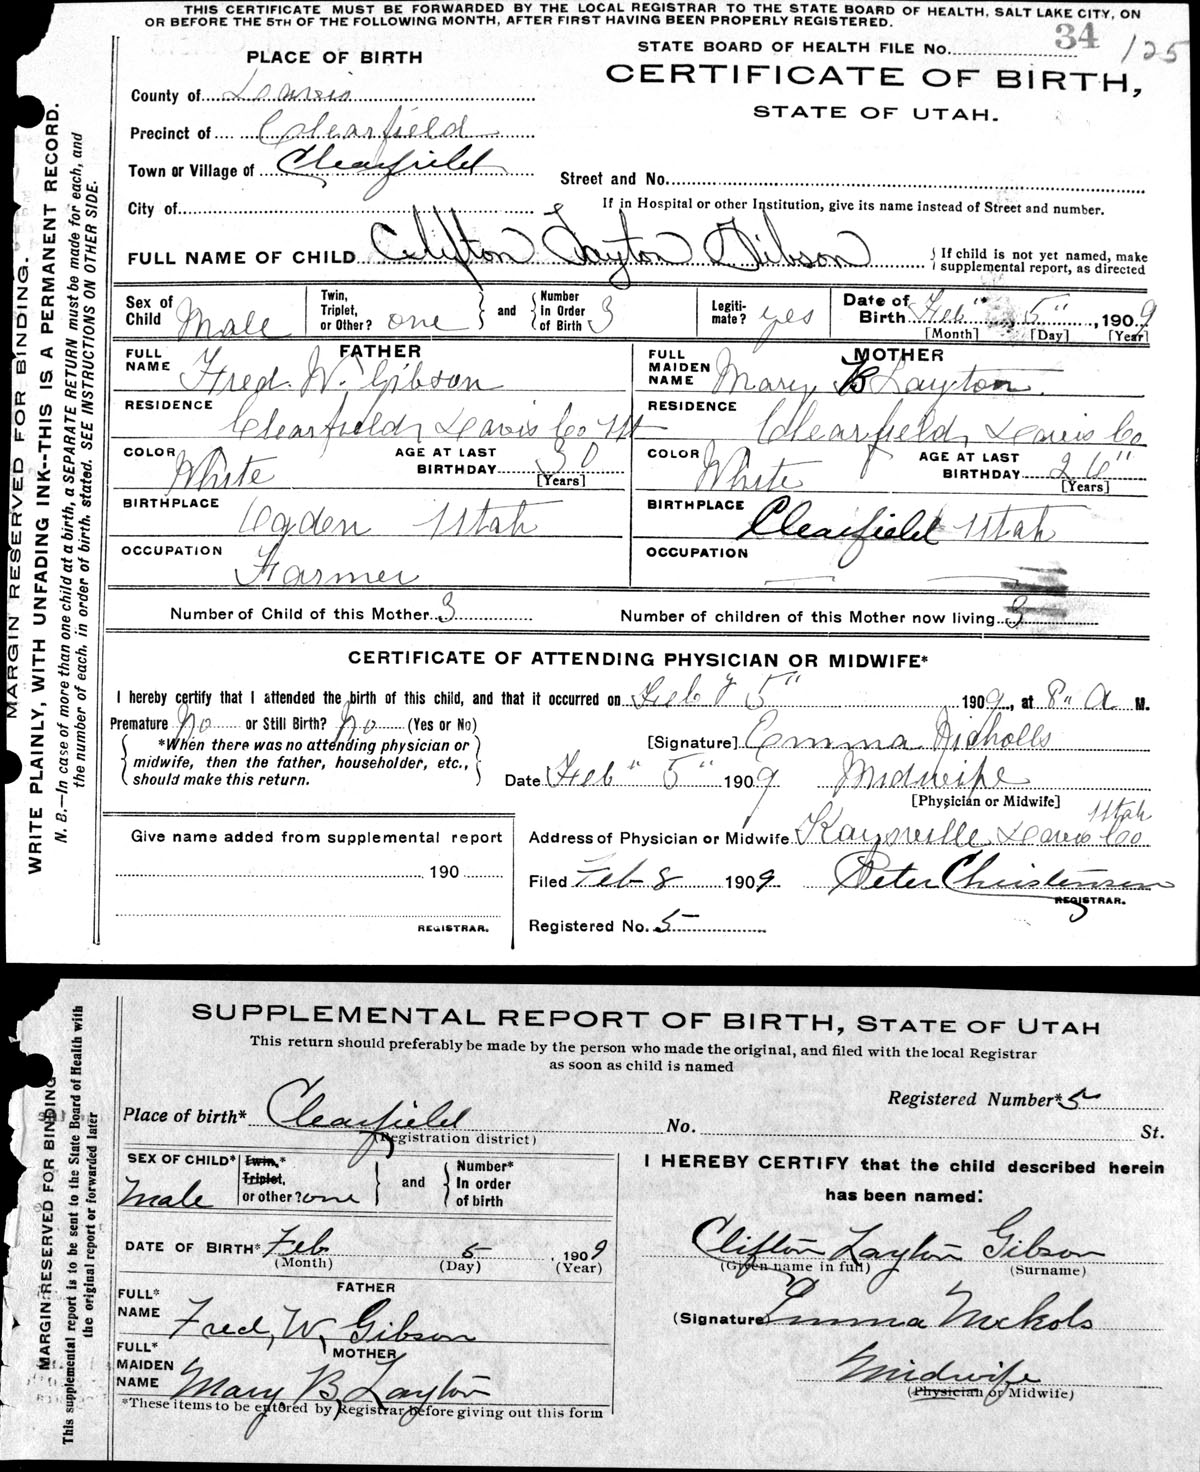 THIS CERTIFICATE MUST BE FORWARDED BY THE LOCAL REGISTRAR TO THE STATE BOARD OF HEALTH, SALT LAKE CITY, ON
OR BEFORE THE 5TH OF THE FOLLOWING MONTH, AFTER FIRST HAVING BEEN PROPERLY REGISTERED.
MARGIN RESERVED FOR BINDING.
WRITE PLAINLY, WITH UNFADING INK--THIS IS A PERMANENT RECORD.
N. B.—In case of more than one child at a birth, a SEPARATE RETURN must be made for each, and
the number of each, in order of birth, stated. SEE INSTRUCTIONS ON OTHER SIDE.
PLACE OF BIRTH
STATE BOARD OF HEALTH FILE No. 34 125
CERTIFICATE OF BIRTH,
STATE OF UTAH.
County of Davis
Precinct of Clearfield
Town or Village of Clearfield
Street and No.
City of
If in Hospital or other Institution, give its name instead of Street and number.
FULL NAME OF CHILD Clifton Layton Gibson
If child is not yet named, make
supplemental report, as directed
Sex of Child Male
Twin, Triplet, or Other? one
and
Number In Order of Birth 3
Legitimate? yes
Date of Birth Feb" 5", 1909
[Month] [Day] [Year]
FATHER
FULL NAME Fred. W. Gibson
MOTHER
FULL MAIDEN NAME Mary B Layton.
RESIDENCE Clearfield, Davis Co Ut
RESIDENCE Clearfield, Davis Co
COLOR White
AGE AT LAST BIRTHDAY 30
[Years]
COLOR White
AGE AT LAST BIRTHDAY 26"
[Years]
BIRTHPLACE Ogden Utah
BIRTHPLACE Clearfield Utah
OCCUPATION Farmer
OCCUPATION
Number of Child of this Mother 3
Number of children of this Mother now living 3
CERTIFICATE OF ATTENDING PHYSICIAN OR MIDWIFE*
I hereby certify that I attended the birth of this child, and that it occurred on Feb y 5" 1909, at 8" A M.
Premature No or Still Birth? No (Yes or No)
*When there was no attending physician or
midwife, then the father, householder, etc.,
should make this return.
[Signature] Emma Nicholls
Date Feb" 5" 1909
Midwife
[Physician or Midwife]
Give name added from supplemental report
190
REGISTRAR.
Address of Physician or Midwife Kaysville Davis Co. Utah
Filed Feb 8 1909.
Peter Christensen
REGISTRAR.
Registered No. 5
MARGIN RESERVED FOR BINDING
This supplemental report is to be sent to the State Board of Health with
the original report or forwarded later
SUPPLEMENTAL REPORT OF BIRTH, STATE OF UTAH
This return should preferably be made by the person who made the original, and filed with the local Registrar
as soon as child is named
Registered Number* 5
Place of birth* Clearfield
(Registration district)
No. St.
SEX OF CHILD* Male
Twin,* Triplet, or other? one
and
Number* In order of birth
I HEREBY CERTIFY that the child described herein
has been named:
DATE OF BIRTH* Feb 5, 1909
(Month) (Day) (Year)
Clifton Layton Gibson
(Given name in full) (Surname)
FATHER
FULL* NAME Fred, W, Gibson
(Signature Emma Nichols
MOTHER
FULL* MAIDEN NAME Mary B, Layton
Midwife
(Physician or Midwife)
*These items to be entered by Registrar before giving out this form